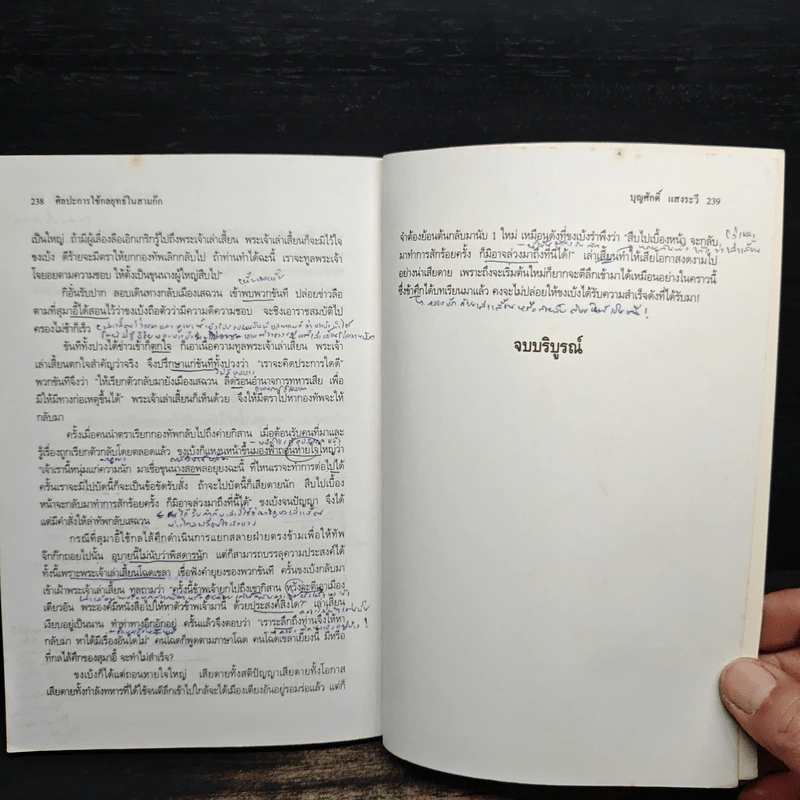 238 ศิลปะการใช้กลยุทธ์ในสามก๊ก
เป็นใหญ่ ถ้ามีผู้เลื่องลืออึกเกริกรู้ไปถึงพระเจ้าเล่าเสี้ยน พระเจ้าเล่าเสี้ยนก็จะมิไว้ใจ
ขงเบ้ง ดีร้ายจะมีตราให้ยกกองทัพเลิกกลับไป ถ้าท่านทำได้ฉะนี้ เราจะทูลพระเจ้า
โจยอยตามความชอบ ให้ตั้งเป็นขุนนางผู้ใหญ่สืบไป"
กิอั๋นรับปาก ลอบเดินทางกลับเมืองเสฉวน เข้าพบพวกขันที ปล่อยข่าวลือ
ตามที่สุมาอี้ได้สอนไว้ว่าขงเบ้งถือตัวว่ามีความดีความชอบ จะชิงเอาราชสมบัติไป
ครองไม่ช้าก็เร็ว
ขันทีทั้งปวงได้ข่าวเช้าก็ตกใจ ก็เอาเนื้อความทูลพระเจ้าเล่าเสี้ยน พระเจ้า
เล่าเสี้ยนตกใจสำคัญว่าจริง จึงปรึกษาแก่ขันทีทั้งปวงว่า "เราจะคิดประการใดดี"
พวกขันทีจึงว่า "ให้เรียกตัวกลับมายังเมืองเสฉวน ลิดรอนอำนาจการทหารเสีย เพื่อ
มิให้มีทางก่อเหตุขึ้นได้" พระเจ้าเล่าเสี้ยนก็เห็นด้วย จึงให้มีตราไปหากองทัพจะให้
กลับมา
ครั้งเมื่อคนนำตราเรียกกองทัพกลับไปถึงค่ายกิสาน เมื่อต้อนรับคนที่มาและ
รู้เรื่องถูกเรียกตัวกลับโดยตลอดแล้ว ขงเบ้งก็แหงนหน้าขึ้นมองฟ้าถอนหายใจใหญ่ว่า
"เจ้าเรานี้หนุ่มแก่ความนัก มาเชื่อขุนนางสอพลอยุยงฉะนี้ ที่ไหนเราจะทำการต่อไปได้
ครั้นเราจะมิไปบัดนี้ก็จะเป็นข้อขัดรับสั่ง ถ้าจะไปบัดนี้ก็เสียดายนัก สืบไปเบื้อง
หน้าจะกลับมาทำการสักร้อยครั้ง ก็มิอาจล่วงมาถึงที่นี้ได้" ขงเบ้งจนปัญญา จึงได้
แต่มีคำสั่งให้ล่าทัพกลับเสฉวน
กรณีที่สุมาอี้ใช้กลไส้ศึกดำเนินการแยกสลายฝ่ายตรงข้ามเพื่อให้ทัพ
จ๊กก๊กถอยไปนั้น อุบายนี้ไม่นับว่าพิสดารนัก แต่ก็สามารถบรรลุความประสงค์ได้
ทั้งนี้เพราะพระเจ้าเล่าเสี้ยนโฉดเขลา เชื่อฟังคำยุยงของพวกขันที ครั้นขงเบ้งกลับมา
เข้าเฝ้าพระเจ้าเล่าเสี้ยน ทูลถามว่า "ครั้งนี้ข้าพเจ้ายกไปถึงเขากิสาน หวังจะตีเอาเมือง
เตียวอัน พระองค์มีหนังสือไปให้หาตัวข้าพเจ้ามานี้ ด้วยประสงค์สิ่งใด?" เล่าเสี้ยน
เงียบอยู่เป็นนาน ทำท่าทางอึกอักอยู่ ครั้นแล้วจึงตอบว่า "เราระลึกถึงท่านจึงให้หา
กลับมา หาได้มีเรื่องอันใดไม่" คนโฉดก็พูดตามภาษาโฉด คนโฉดเขลาเยี่ยงนี้ มีหรือ
ที่กลไส้ศึกของสุมาอี้ จะทำไม่สำเร็จ?
ขงเบ้งก็ได้แต่ถอนหายใจใหญ่ เสียดายทั้งสติปัญญาเสียดายทั้งโอกาส
เสียดายทั้งกำลังทหารที่ได้ใช้จนตีลึกเข้าไปใกล้จะได้เมืองเตียงอันอยู่รอมร่อแล้ว แต่ก็
บุญศักดิ์ แสงระวี 239
จำต้องย้อนต้นกลับมานับ 1 ใหม่ เหมือนดังที่ขงเบ้งรำพึงว่า "สืบไปเบื้องหน้า จะกลับ
มาทำการสักร้อยครั้ง ก็มิอาจล่วงมาถึงที่นี้ได้!" เล่าเสี้ยนทำให้เสียโอกาสงดงามไป
อย่างน่าเสียดาย เพราะถึงจะเริ่มต้นใหม่ก็ยากจะตีลึกเข้ามาได้เหมือนอย่างในคราวนี้
ซึ่งข้าศึกได้บทเรียนมาแล้ว คงจะไม่ปล่อยให้ขงเบ้งได้รับความสำเร็จดังที่ได้รับมา!
จบบริบูรณ์